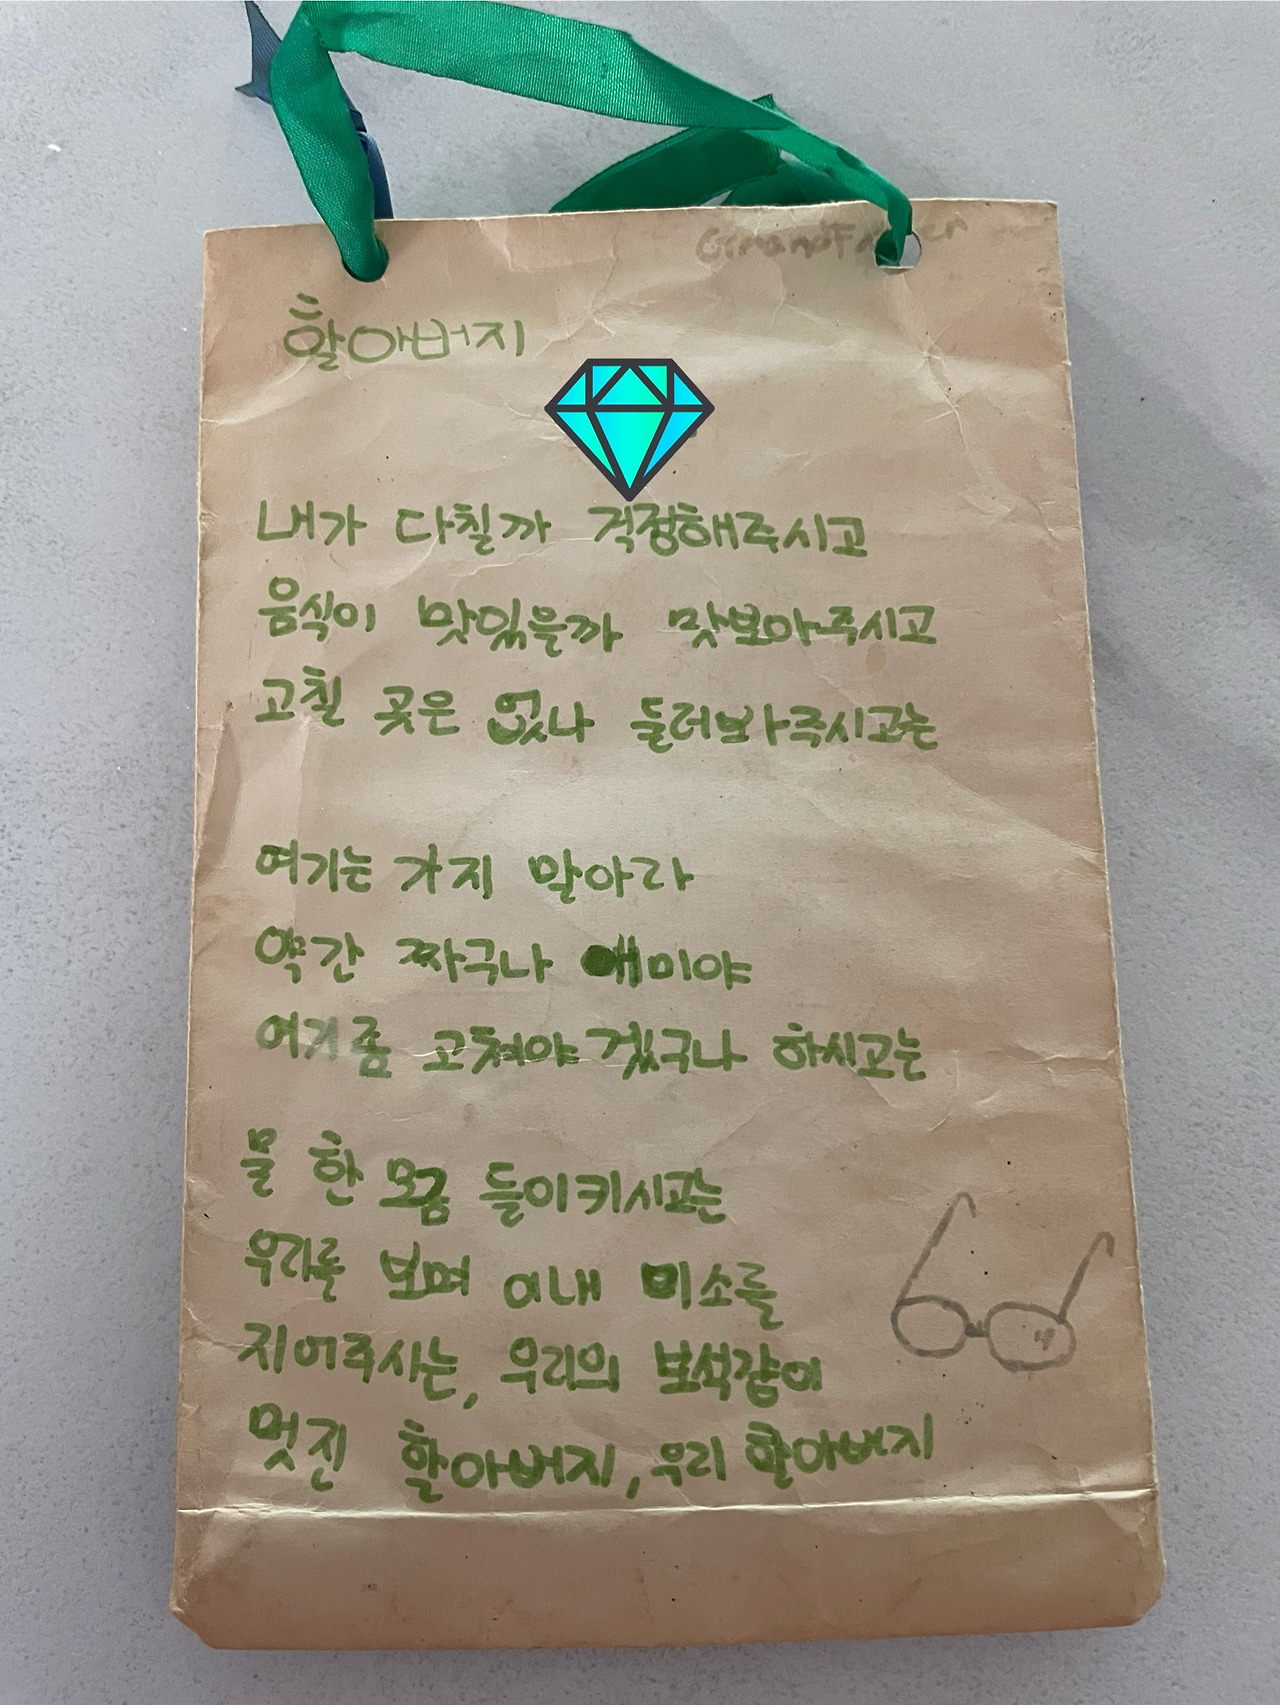 GrandFather
할아버지
내가 다칠까 걱정해주시고
음식이 맛있을까 맛보아주시고
고칠 곳은 없나 둘러보아주시고는
여기는 가지 말아라
약간 짜구나 애미야
여기좀 고쳐야 겠구나 하시고는
물 한 모금 들이키시고는
우리를 보며 이내 미소를
지어주시는, 우리의 보석같이
멋진 할아버지, 우리 할아버지